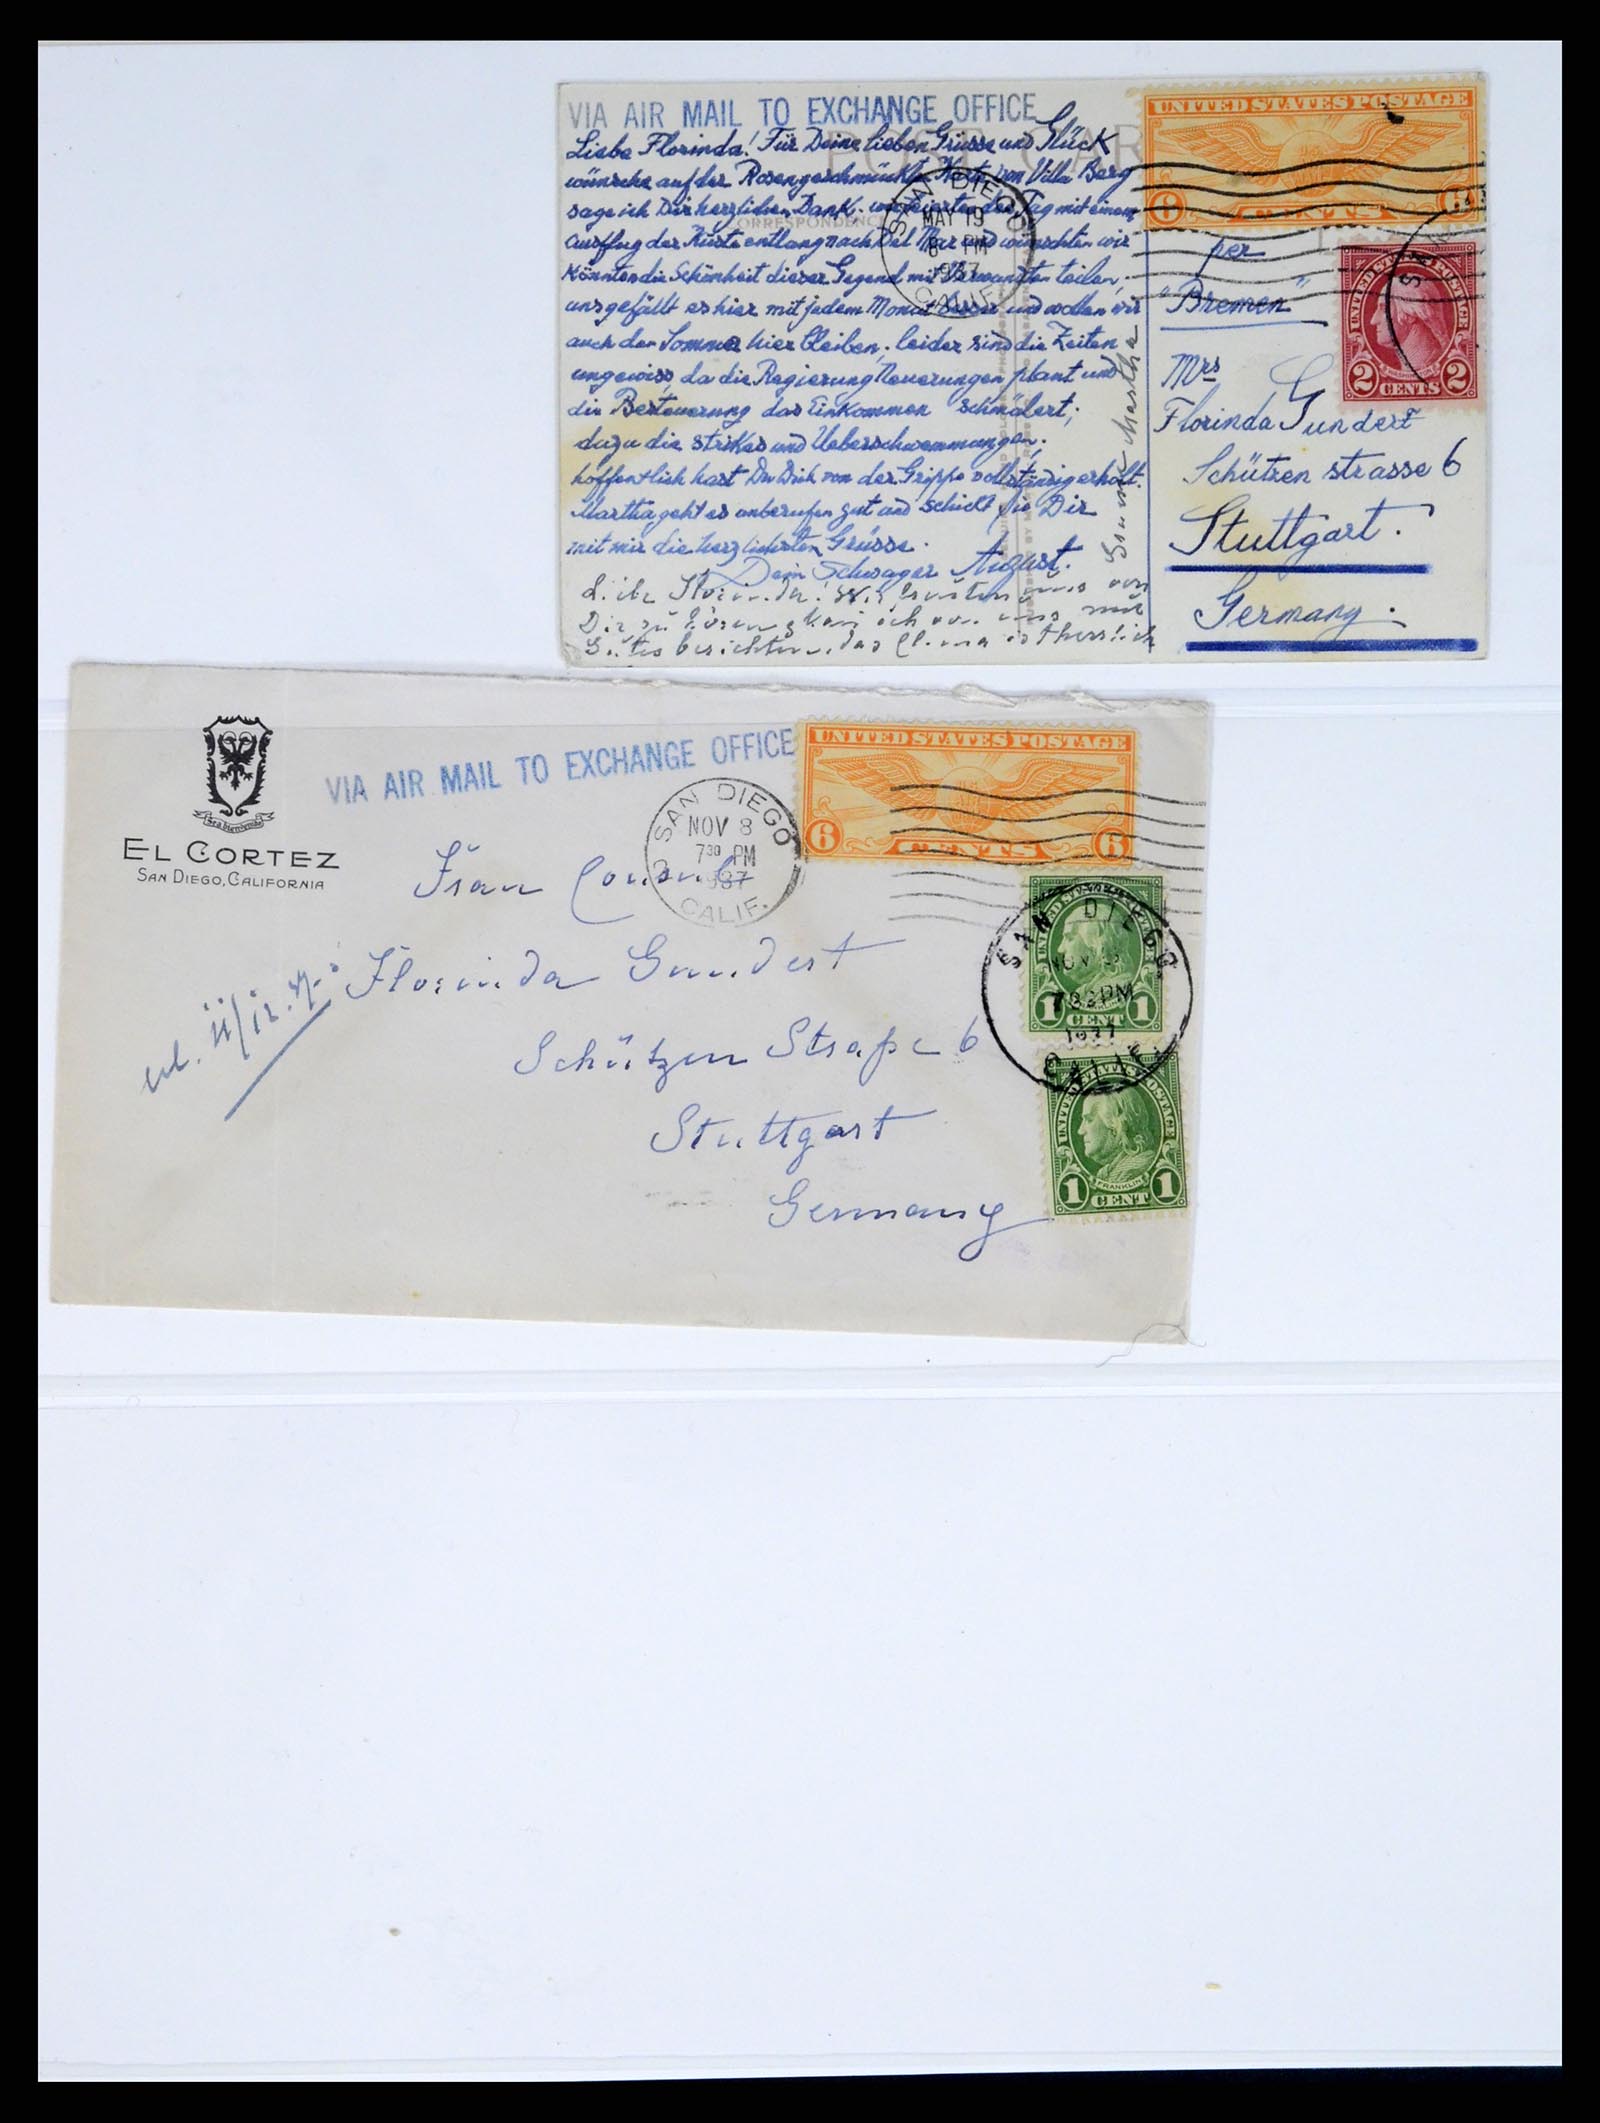 VIA AIR MAIL TO EXCHANGE OFFICE
POST CAR
CORRESPONDENCE
Liebe Florinda! Für Deine lieben Grüsse und Glück
wünsche auf der Rosengeschmückten Karte von Villa Berg
sage ich Dir herzlichen Dank. wir feierten den Tag mit einem
Ausflug der Küste entlang nach Del Mar und wünschten wir
könnten die Schönheit dieser Gegend mit Verwandten teilen,
uns gefällt es hier mit jedem Monat besser und wollen wir
auch den Sommer hier bleiben, leider sind die Zeiten
ungewiss, da die Regierung Neuerungen plant und
die Besteuerung das Einkommen schmälert;
dazu die Strikes und Ueberschwemmungen.
hoffentlich hast Du Dich von der Grippe vollständig erholt.
Martha geht es unberufen gut und schickt sie Dir
mit mir die herzlichsten Grüsse.
Dein Schwager August.
Liebe Florinda! wir freuten uns von
Dir zu hören & kann ich von uns nur
Gutes berichten, das Clima ist herrlich
Martha
SAN DIEGO
MAY 19
8 PM
1937
CALIF.
UNITED STATES POSTAGE
6 CENTS 6
UNITED STATES POSTAGE
2 CENTS 2
per
"Bremen"
Mrs
Florinda Gundert
Schützenstrasse 6
Stuttgart.
Germany.
Sea bienvenido
EL CORTEZ
SAN DIEGO, CALIFORNIA
VIA AIR MAIL TO EXCHANGE OFFICE
SAN DIEGO
NOV 8
7 30 PM
1937
CALIF.
UNITED STATES POSTAGE
6 CENTS 6
Frau Consul
Florinda Gundert
Schützen Straße 6
Stuttgart
Germany
SAN DIEGO
NOV 8
7 30 PM
1937
CALIF.
UNITED STATES POSTAGE
1 CENT 1
UNITED STATES POSTAGE
FRANKLIN
1 CENT 1